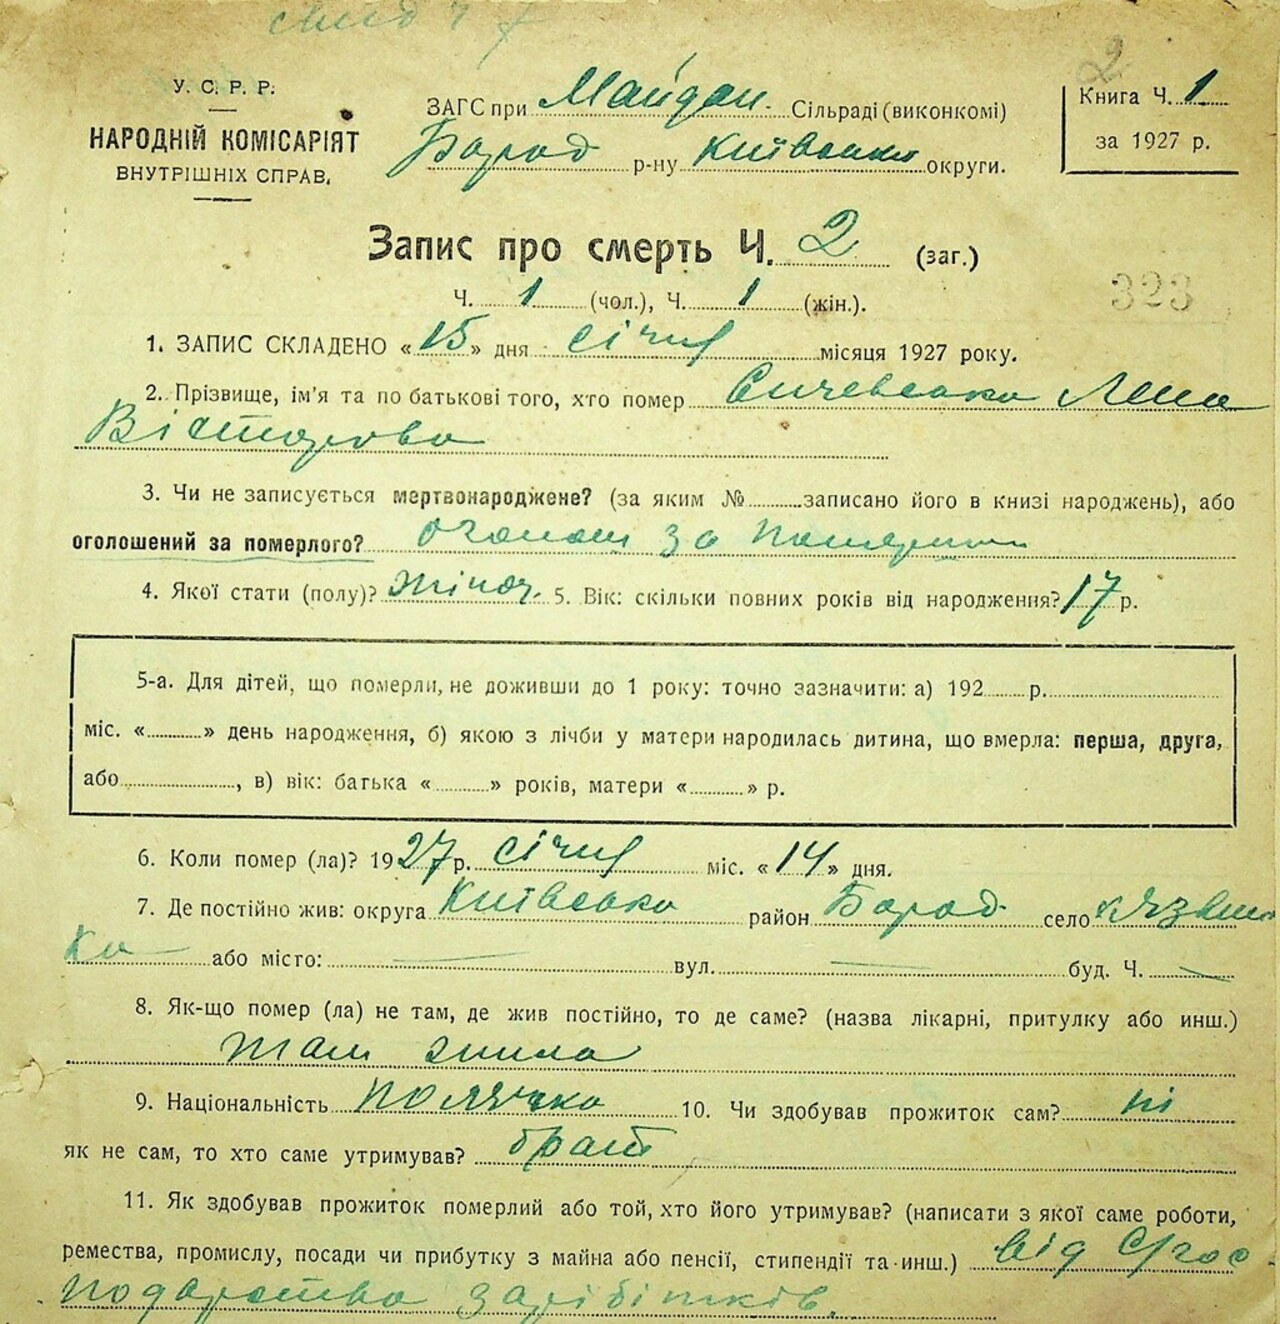 2
У. С. Р. Р.
НАРОДНІЙ КОМІСАРІЯТ
ВНУТРІШНІХ СПРАВ.
ЗАГС при Майдан. Сільраді (виконкомі)
Бород р-ну Київсько округи.
Книга Ч. 1
за 1927 р.
Запис про смерть Ч. 2 (заг.)
Ч. 1 (чол.), Ч. 1 (жін.).
323
1. ЗАПИС СКЛАДЕНО «15» дня січня місяця 1927 року.
2. Прізвище, ім'я та по батькові того, хто помер Сичевська
Вікторова
3. Чи не записується мертвонароджене? (за яким № записано його в книзі народжень), або
оголошений за померлого? за
4. Якої стати (полу)? жіноч. 5. Вік: скільки повних років від народження? 17 р.
5-а. Для дітей, що померли, не доживши до 1 року: точно зазначити: а) 192 р.
міс. « » день народження, б) якою з лічби у матери народилась дитина, що вмерла: перша, друга,
або , в) вік: батька « » років, матери « » р.
6. Коли помер (ла)? 1927 р. січня міс. «14» дня.
7. Де постійно жив: округа Київсько район Бород село
ка або місто: — вул. — буд. Ч. —
8. Як-що помер (ла) не там, де жив постійно, то де саме? (назва лікарні, притулку або инш.)
там жила
9. Національність полячка 10. Чи здобував прожиток сам? ні
як не сам, то хто саме утримував? брат
11. Як здобував прожиток померлий або той, хто його утримував? (написати з якої саме роботи,
ремества, промислу, посади чи прибутку з майна або пенсії, стипендії та инш.) від с/гос
подарства заробітків.